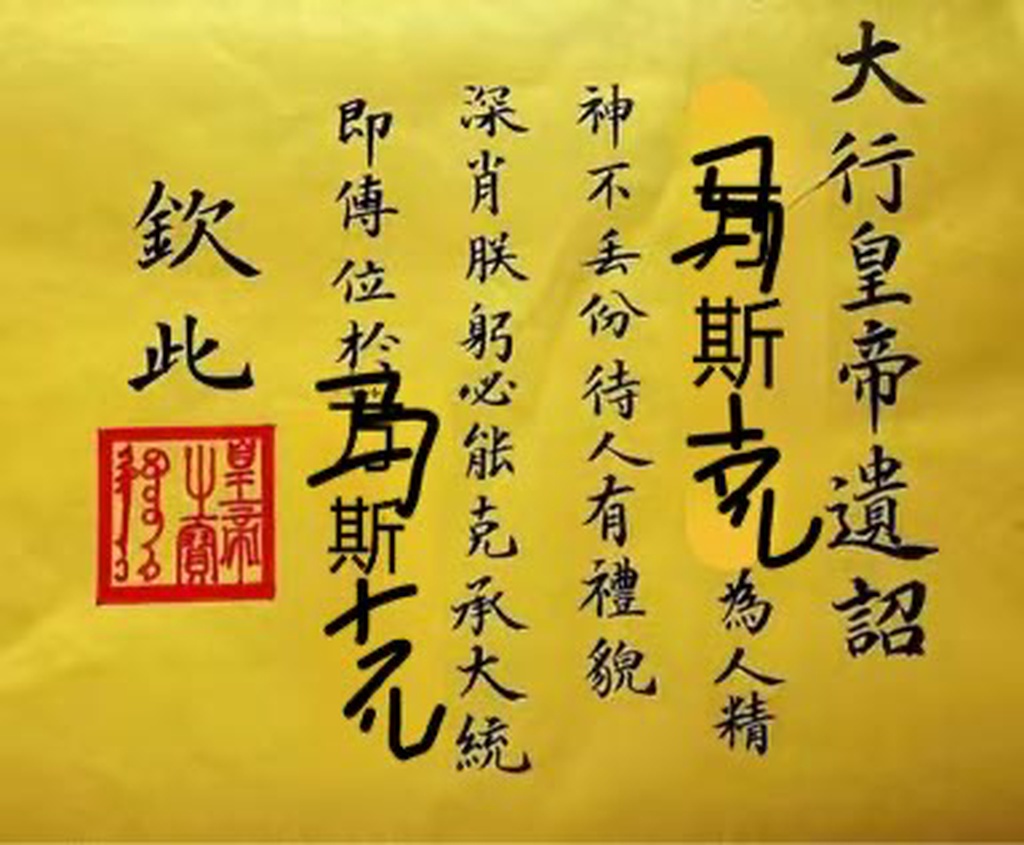 大行皇帝遺詔
马斯克為人精
神不丢份待人有禮貌
深肖朕躬必能克承大統
即傳位於马斯克
欽此
皇帝
之寶